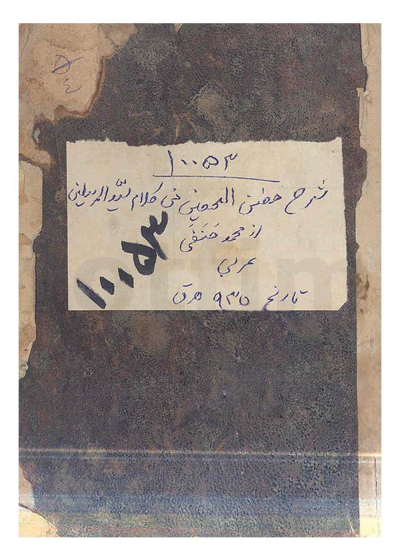 ۵
٤
۱۰۰۵۳
شرح حصن الحصین فی کلام سید المرسلین
از محمد حنفی
عربی
تاریخ ۹۳۵ ه‍ ق
۱۰۰۵۳